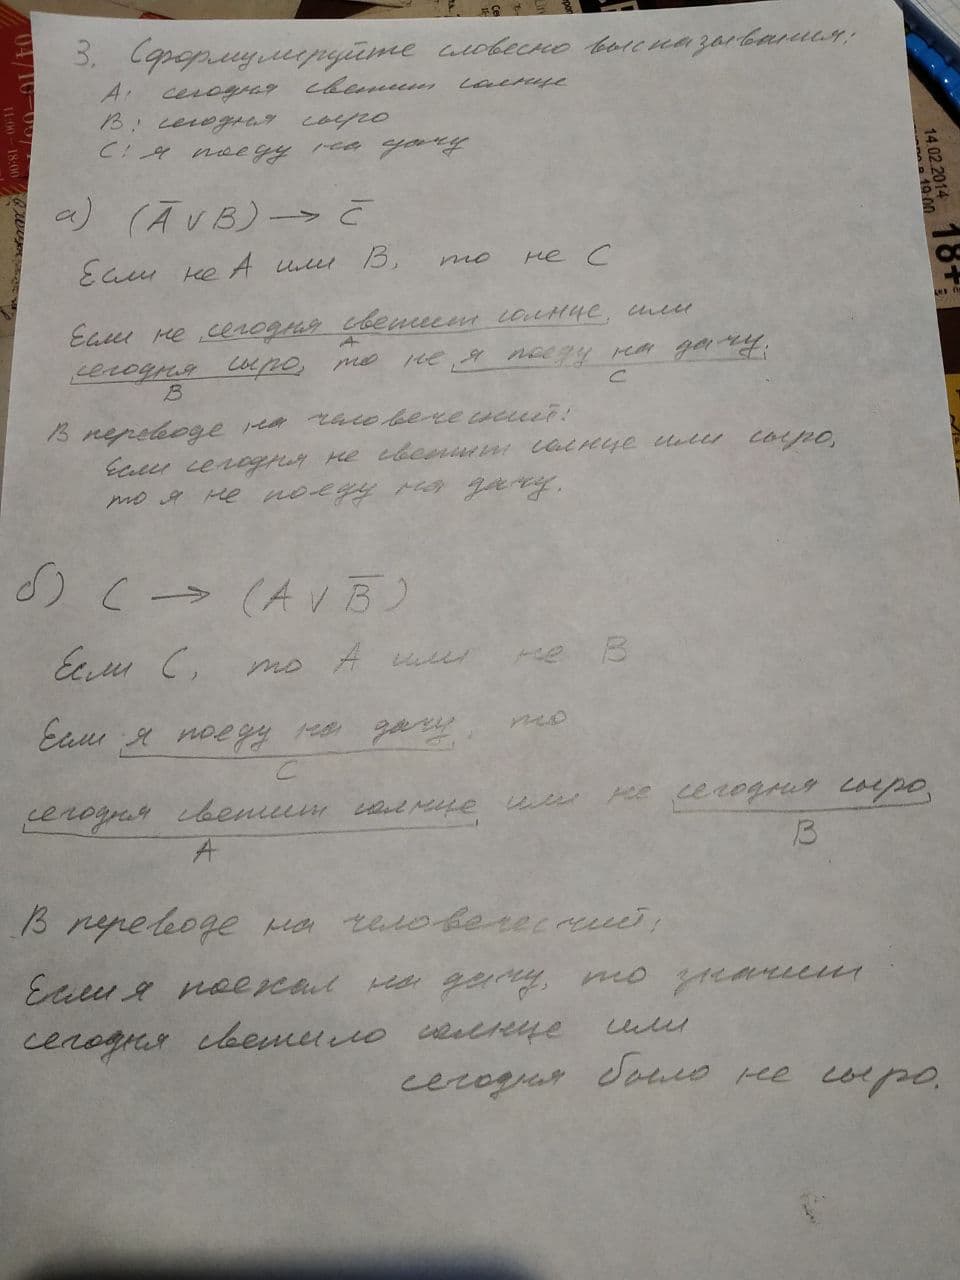 3. Сформулируйте словесно высказывания:
A: сегодня светит солнце
B: сегодня сыро
C: я поеду на дачу
а) (A̅ ∨ B) → C̅
Если не A или B, то не C
Если не сегодня светит солнце, или
A
сегодня сыро, то не я поеду на дачу.
B C
В переводе на человеческий:
Если сегодня не светит солнце или сыро,
то я не поеду на дачу.
б) C → (A ∨ B̅)
Если C, то A или не B
Если я поеду на дачу, то
C
сегодня светит солнце или не сегодня сыро.
A B
В переводе на человеческий:
Если я поехал на дачу, то значит
сегодня светило солнце или
сегодня было не сыро.
04/10-06/1
11:00-18:00
14.02.2014
19:00
18+